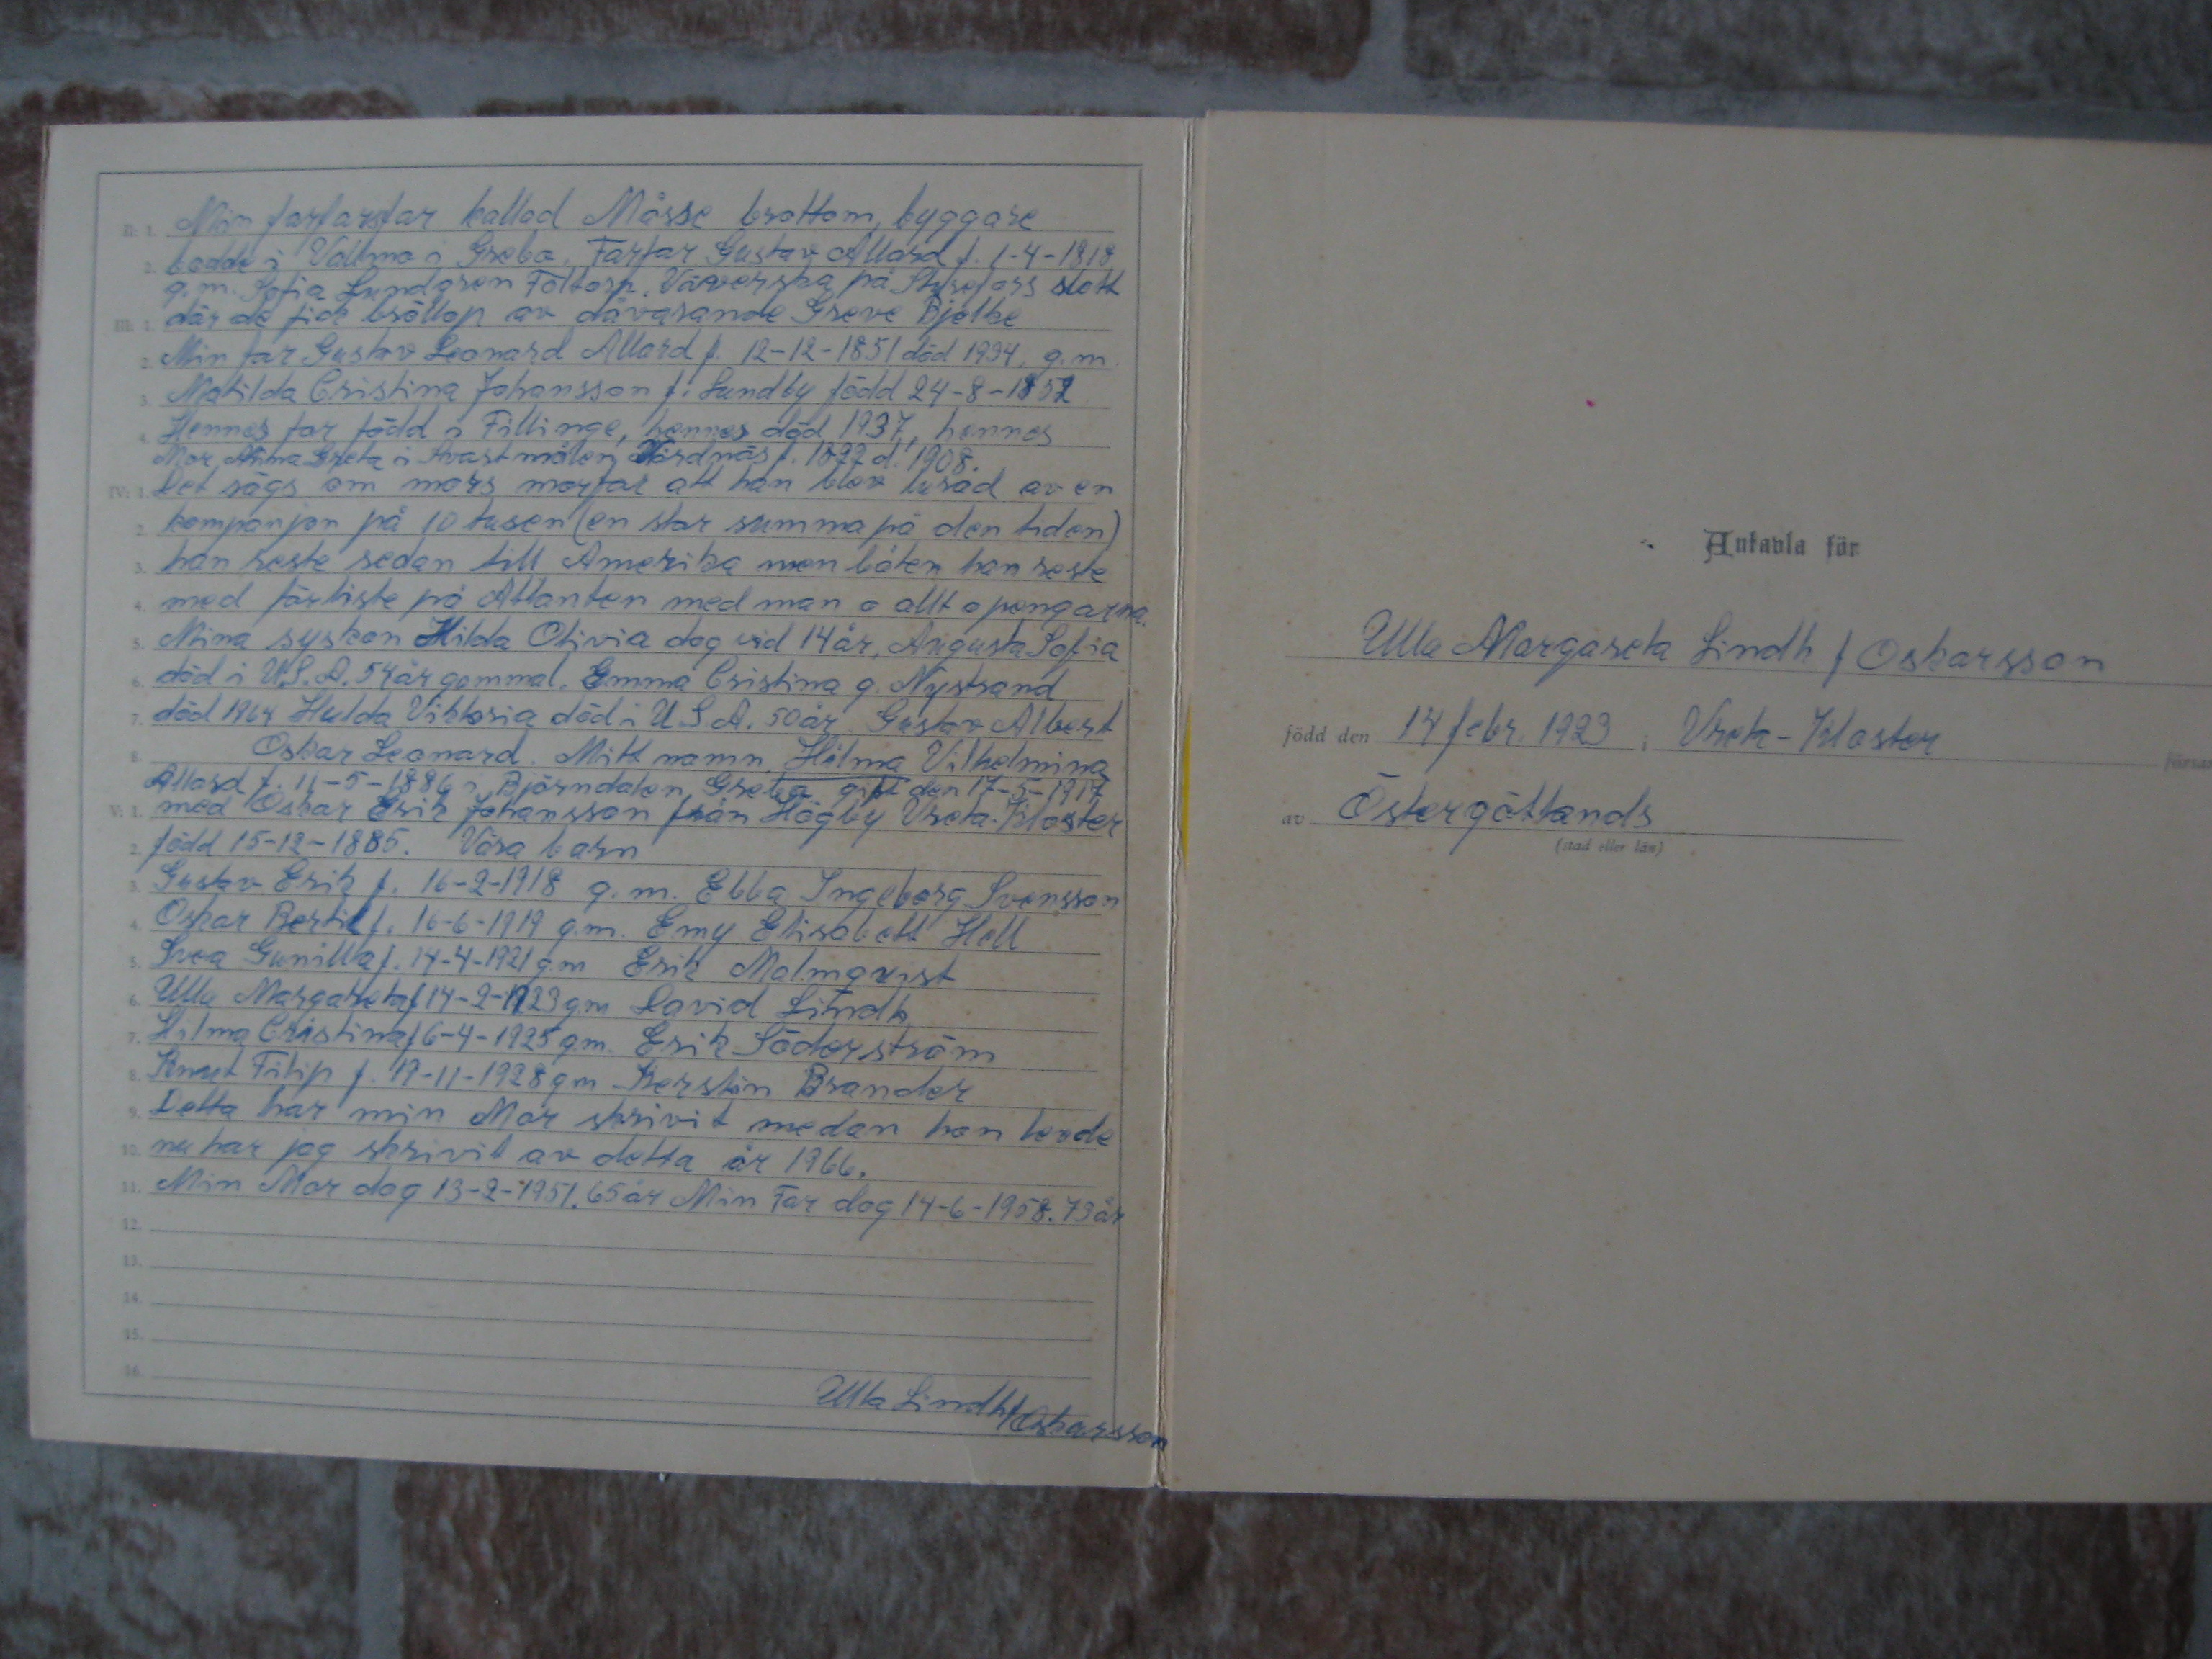 II: 1. Min farfarsfar kallad Mårse brottom, byggare
2. bodde i Vallmo i Grebo. Farfar Gustav Allard f. 1-4-1818
g.m. Sofia Lundgren Foltorp. Väverska på Sturefors slott
III: 1. där de fick bröllop av dåvarande Greve Bjelke
2. Min far Gustav Leonard Allard f. 12-12-1851 död 1934, g.m.
3. Matilda Cristina Johansson f. Lundby född 24-8-1852
4. Hennes far född i Fillinge, hennes död 1937, hennes
Mor, Anna Greta i Svartmålen Värdnäs f. 1822 d. 1908.
IV: 1. Det sägs om mors morfar att han blev lurad av en
2. kompanjon på 10 tusen (en stor summa på den tiden)
3. han reste sedan till Amerika men båten han reste
4. med förliste på Atlanten med man o allt o pengarna.
5. Mina syskon Hilda Olivia dog vid 14 år, Augusta Sofia
6. död i U.S.A. 54 år gammal. Emma Cristina g. Nystrand
7. död 1964 Hulda Viktoria död i U S A. 50 år Gustav Albert
8. Oskar Leonard. Mitt namn Hilma Vilhelmina
Allard f. 11-5-1886 i Björndalen, Grebo gift den 17-5-1917
V: 1. med Oskar Erik Johansson från Högby Vreta-Kloster
2. född 15-12-1885. Våra barn
3. Gustav Erik f. 16-2-1918 g.m. Ebba Ingeborg Svensson
4. Oskar Bertil f. 16-6-1919 g.m. Emy Elisabett Hell
5. Svea Gunilla f. 14-4-1921 g.m Erik Malmqvist
6. Ulla Margareta f 14-2-1923 g m David Lindh
7. Hilma Cristina f 6-4-1925 g m. Erik Söderström
8. Knut Filip f. 19-11-1928 g m. Kerstin Brander
9. Detta har min Mor skrivit medan hon levde
10. nu har jag skrivit av detta år 1966.
11. Min Mor dog 13-2-1951. 65 år Min Far dog 14-6-1958. 73 år
12.
13.
14.
15.
16.
Ulla Lindh f Oskarsson
Antavla för
Ulla Margareta Lindh f Oskarsson
född den 14 febr. 1923 i Vreta-Kloster
av Östergötlands
(stad eller län)